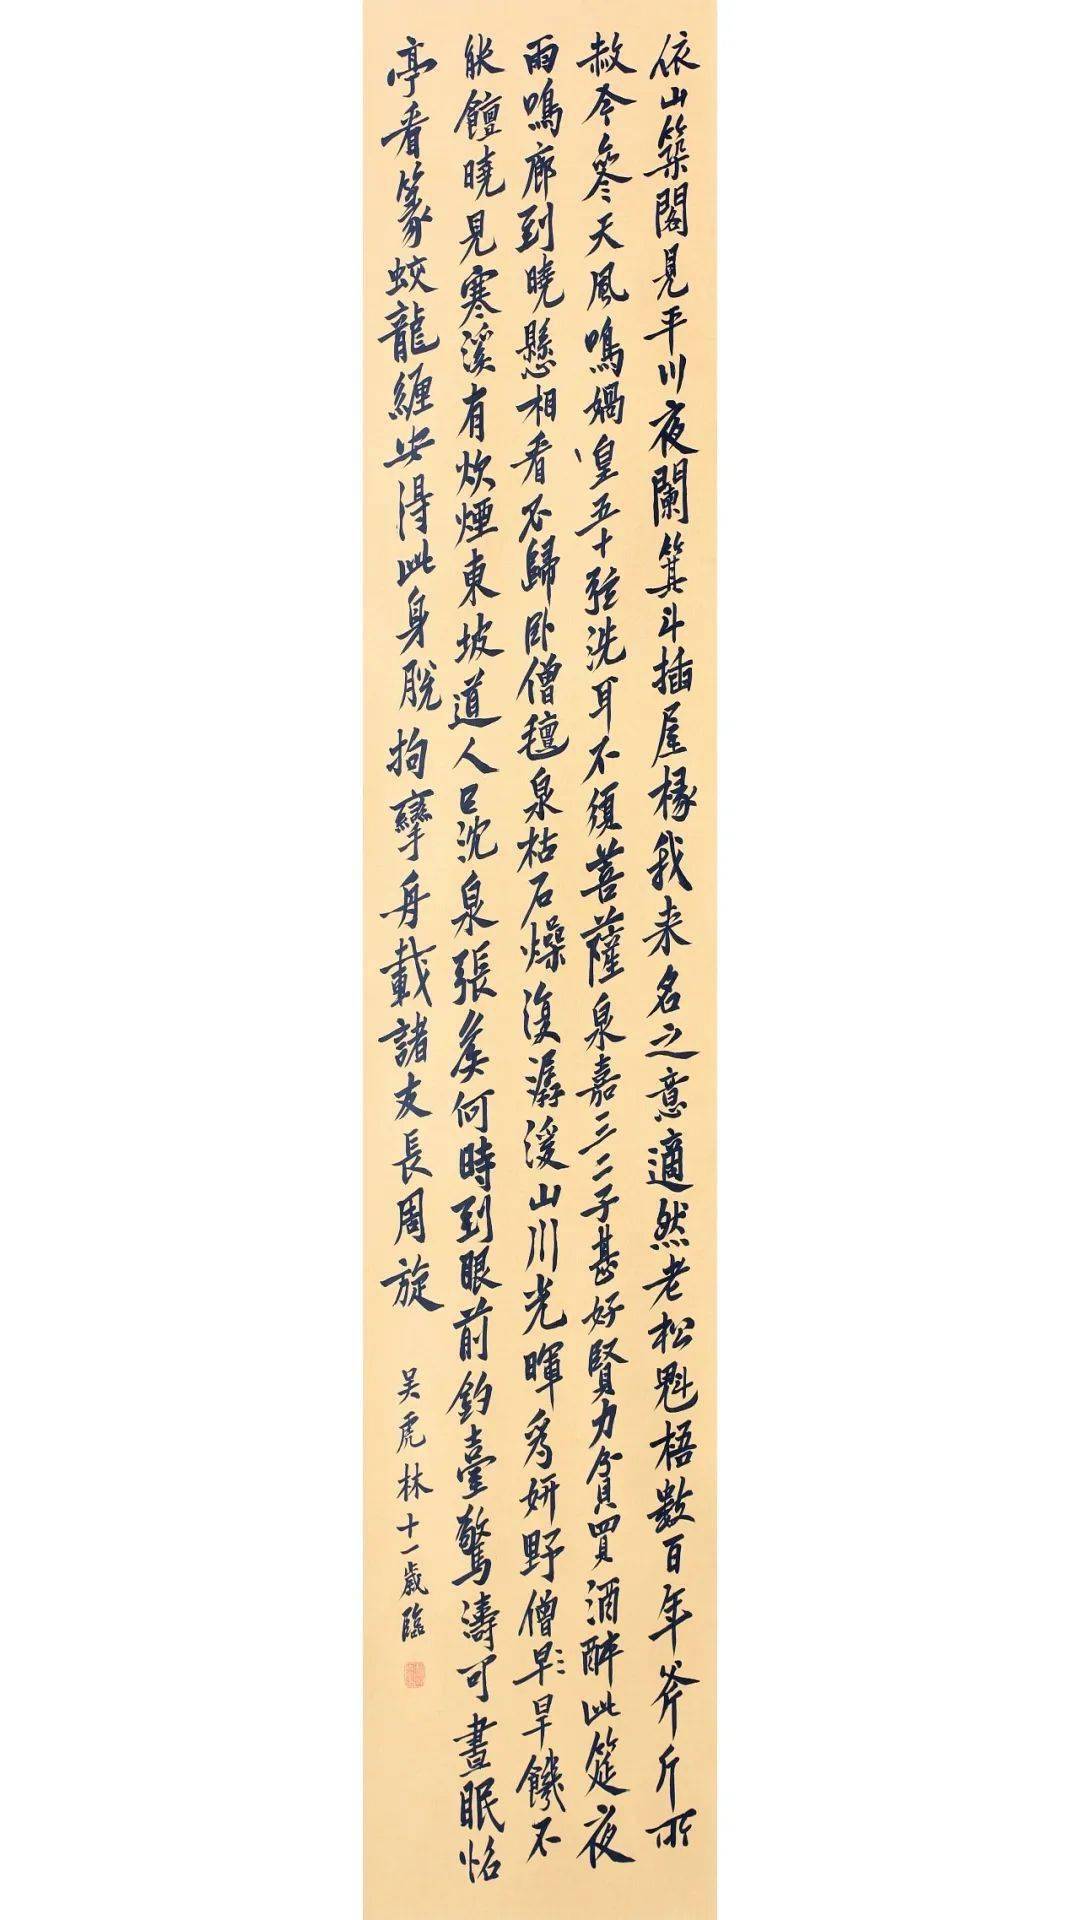 依山築閣見平川夜闌箕斗插屋椽我来名之意適然老松魁梧數百年斧斤所
赦今參天風鳴媧皇五十弦洗耳不須菩薩泉嘉三二子甚好賢力貧買酒醉此筵夜
雨鳴廊到曉懸相看不歸卧僧氈泉枯石燥復潺湲山川光暉為妍野僧早旱饑不
能饘曉見寒溪有炊煙東坡道人已沈泉張矦何時到眼前釣臺驚濤可晝眠怡
亭看篆蛟龍纏安得此身脫拘攣舟載諸友長周旋
吳虎林十一歲臨